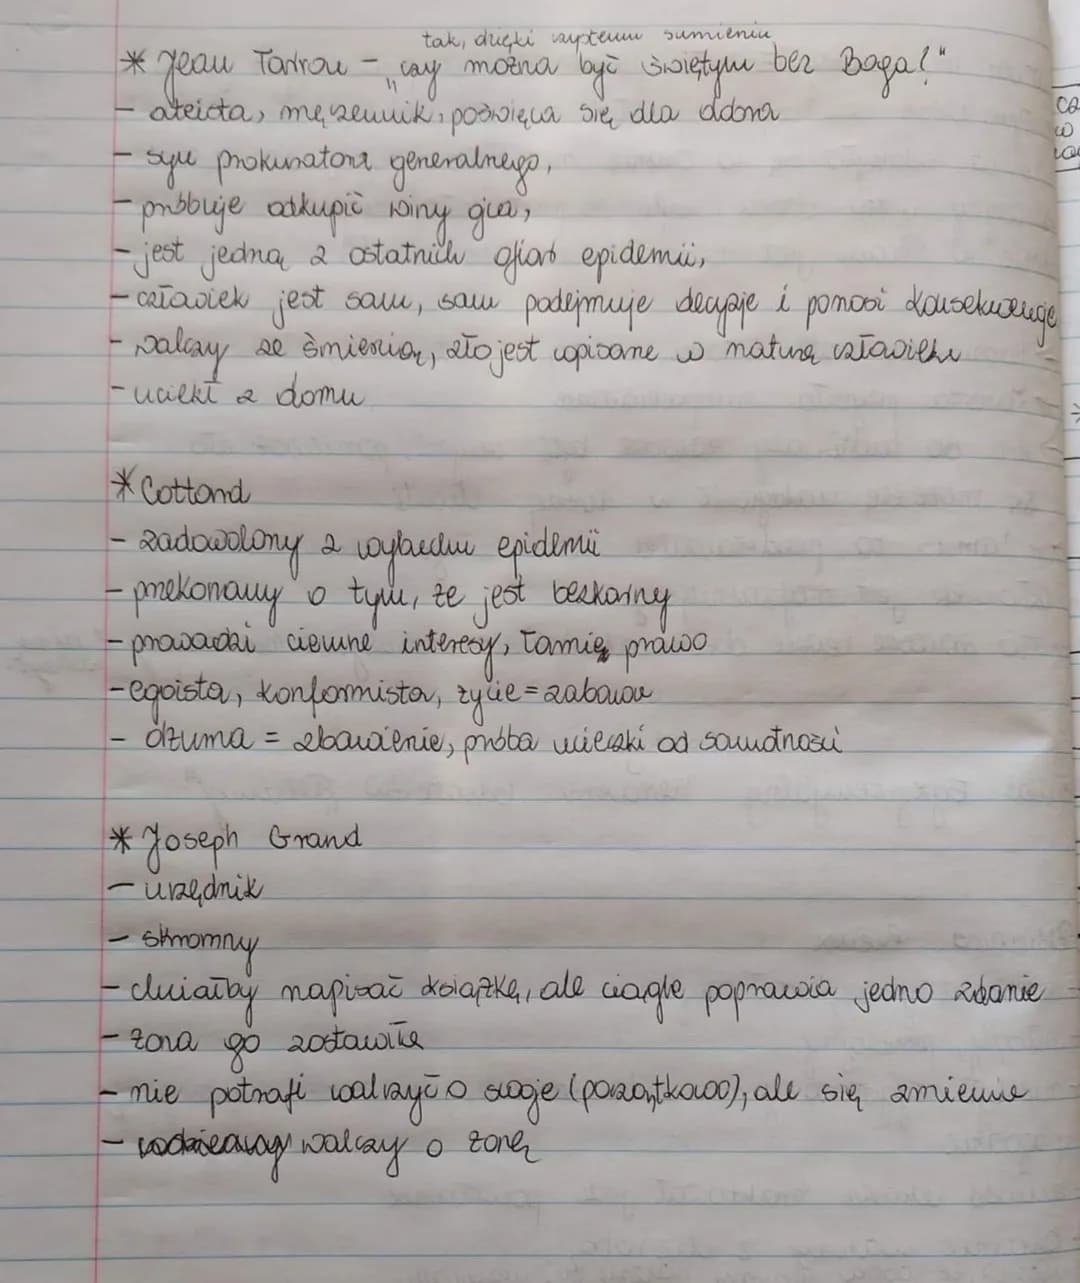 tak, dzięki czystemu sumieniu
* Jean Tarrou - "czy można być świętym bez Boga?"
- ateista, męczennik, poświęca się dla dobra
- syn prokuratora generalnego,
- próbuje odkupić winy ojca,
- jest jedną z ostatnich ofiar epidemii,
- człowiek jest sam, sam podejmuje decyzje i ponosi konsekwencje
- walczy ze śmiercią, zło jest wpisane w naturę człowieka
- uciekł z domu
* Cottard
- zadowolony z wybuchu epidemii
- przekonany o tym, że jest bezkarny
- prowadzi ciemne interesy, łamie prawo
- egoista, konformista, życie = zabawa
- dżuma = zbawienie, próba ucieczki od samotności
* Joseph Grand
- urzędnik
- skromny
- chciałby napisać książkę, ale ciągle poprawia jedno zdanie
- żona go zostawiła
- nie potrafi walczyć o swoje (początkowo), ale się zmienia
- walczy o żonę